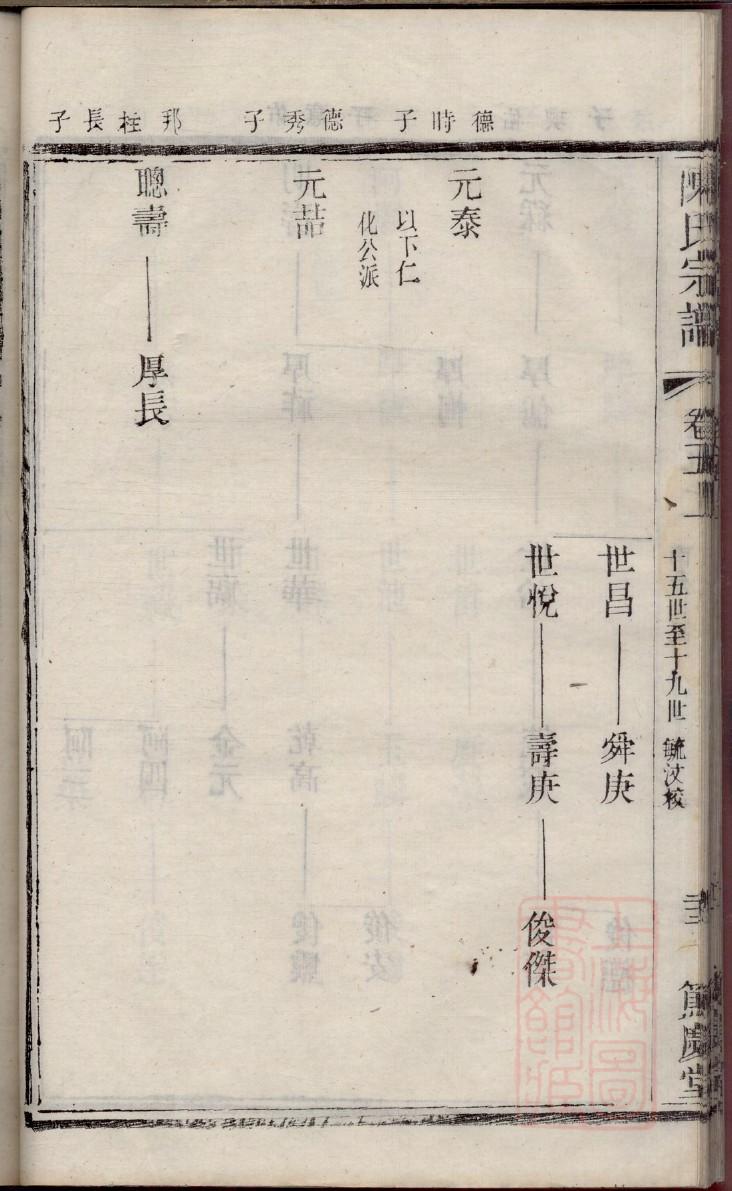 陳氏宗譜
卷五上
十五世至十九世 毓汶校
篤慶堂
世昌 舜庚
世悅 壽庚 俊傑
德時子
元泰
以下仁
化公派
德秀子
元喆
邦柱長子
聰壽 厚長